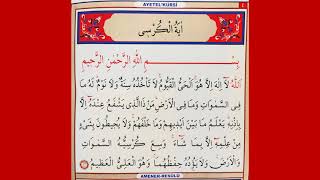 AYETEL'KÜRSİ
٤
اٰيَةُ الْكُرْسِى
بِسْمِ اللّٰهِ الرَّحْمٰنِ الرَّحِيمِ
اَللّٰهُ لَٓا اِلٰهَ اِلَّا هُوَ الْحَىُّ الْقَيُّومُ لَا تَأْخُذُهُ سِنَةٌ وَلَا نَوْمٌ لَهُ مَا
فِى السَّمٰوَاتِ وَمَا فِى الْاَرْضِ مَنْ ذَا الَّذِى يَشْفَعُ عِنْدَهُٓ اِلَّا
بِاِذْنِهِ يَعْلَمُ مَا بَيْنَ اَيْدِيهِمْ وَمَا خَلْفَهُمْ وَلَا يُحِيطُونَ بِشَىْءٍ
مِنْ عِلْمِهِٓ اِلَّا بِمَا شَٓاءَ وَسِعَ كُرْسِيُّهُ السَّمٰوَاتِ
وَالْاَرْضَ وَلَا يَؤُدُهُ حِفْظُهُمَا وَهُوَ الْعَلِىُّ الْعَظِيمُ
AMENER-RESULÜ